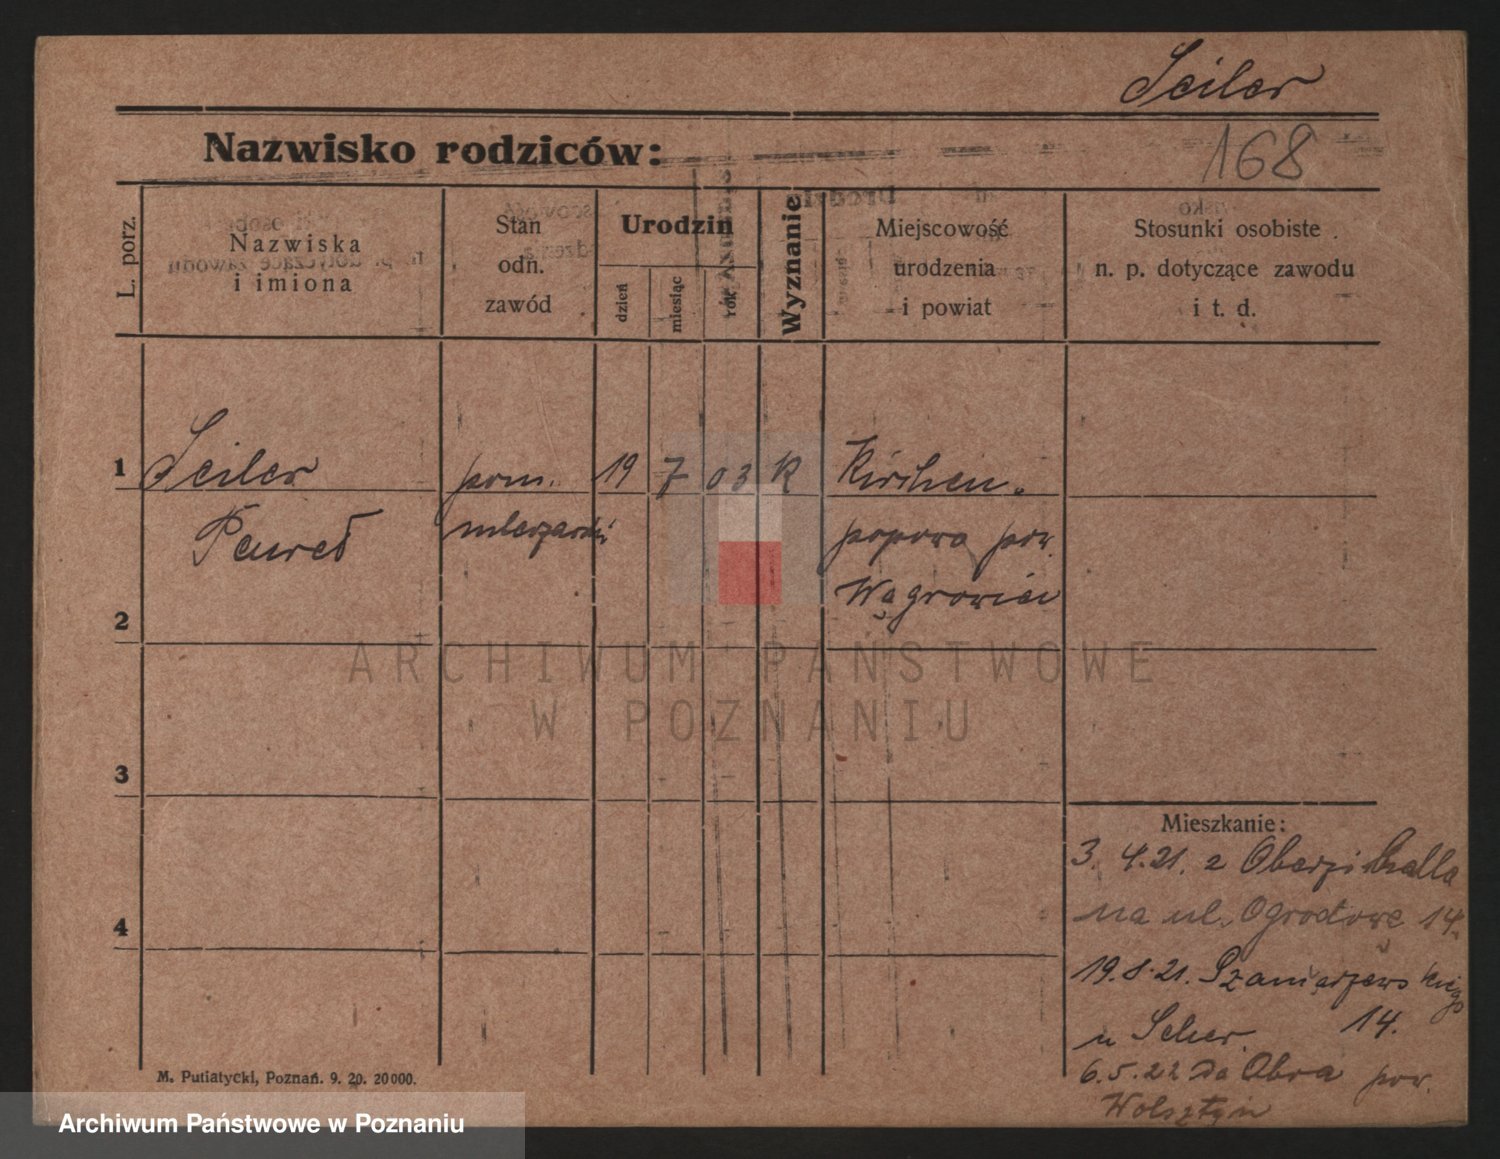 Seiler
168
Nazwisko rodziców:
L. porz.
Nazwiska
i imiona
Stan
odn.
zawód
Urodzin
dzień
miesiąc
rok
Wyznanie
Miejscowość
urodzenia
i powiat
Stosunki osobiste
n. p. dotyczące zawodu
i t. d.
1
Seiler
pom.
19
7
03
K
Kirchen-
Paweł
popowo pow.
2
3
4
Mieszkanie:
3. 4.21. z
na ul. Ogrodowe 14.
19.8.21.
14.
u Scher.
6.5.22 do Obra pow.
Wolsztyn
M. Putiatycki, Poznań. 9. 20. 20000.
ARCHIWUM PAŃSTWOWE
W POZNANIU
Archiwum Państwowe w Poznaniu